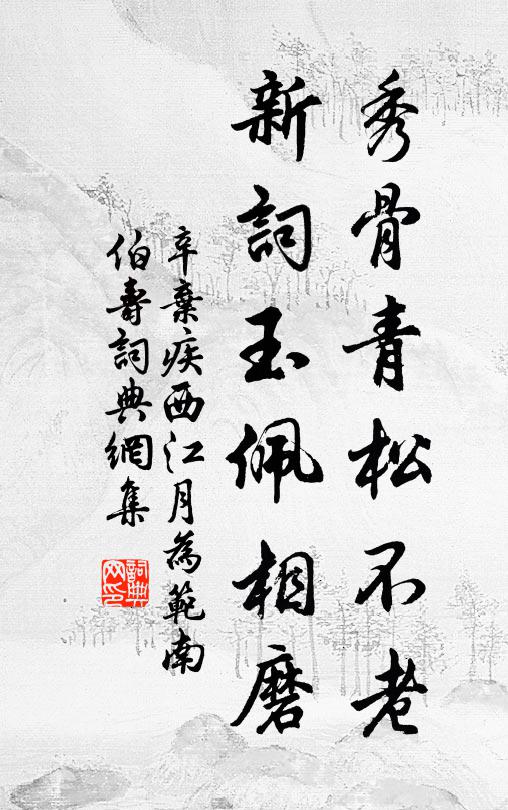 秀骨青松不老
新詞玉佩相磨
辛棄疾西江月為範南
伯壽詞典網集
詞典網印